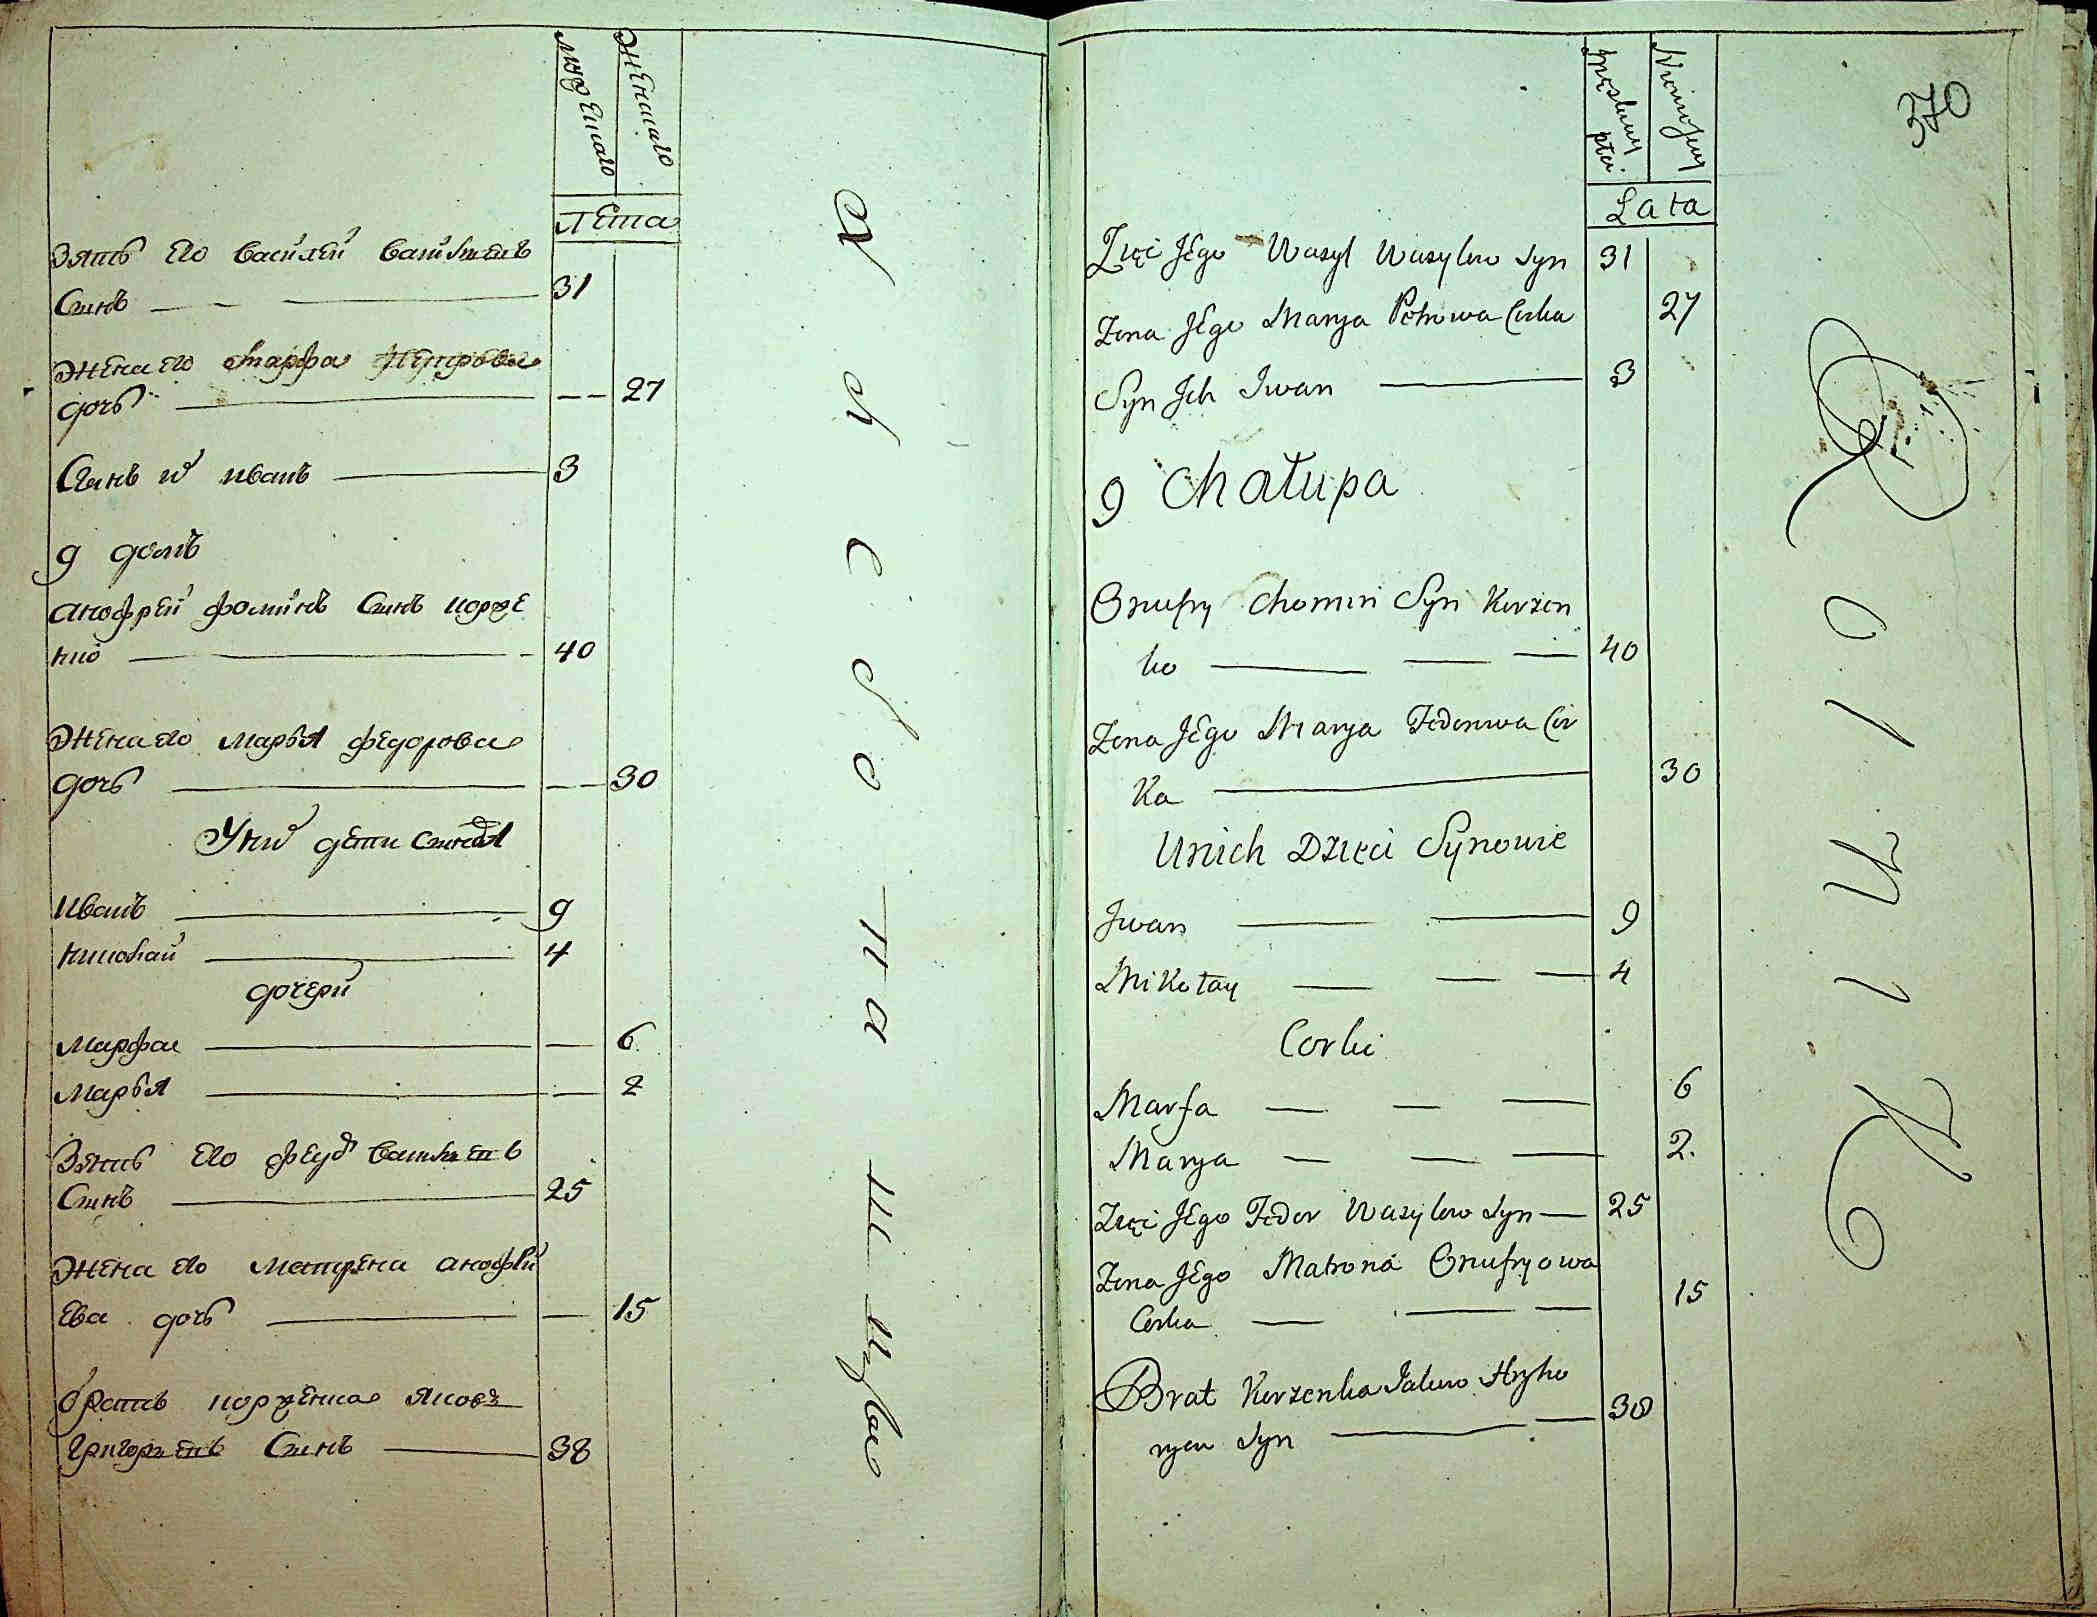 мужескаго
женскаго
Лета
Зять его Василей Васильевъ
Синъ 31
Жена его Марфа Петрова
дочь 27
Синъ их Иванъ 3
9 домъ
Анофрей Фоминъ Синъ Корже
нко 40
Жена его Марья Федорова
дочь 30
У них дети Синовья
Иванъ 9
Николай 4
дочери
Марфа 6
Марья 2
Зять его Федор Васильевъ
Синъ 25
Жена его Матрена Анофрі
ева дочь 15
братъ Корженка Яковъ
Григорьевъ Синъ 38
370
męskiey płci
Niewiesciey
Lata
Zięć Jego Wasyl Wasylow Syn 31
Zona Jego Marya Petrowa Corka 27
Syn Jch Iwan 3
9 Chałupa
Onufry Chomin Syn Korzen
ko 40
Zona Jego Marya Fedorowa Cor
ka 30
Unich Dzieci Synowie
Jwan 9
Mikołay 4
Corki
Marfa 6
Marya 2.
Zięć Jego Fedor Wasylow Syn 25
Zona Jego Matrona Onufryowa
Corka 15
Brat Korzenka Jakow Hryho
ryew Syn 38